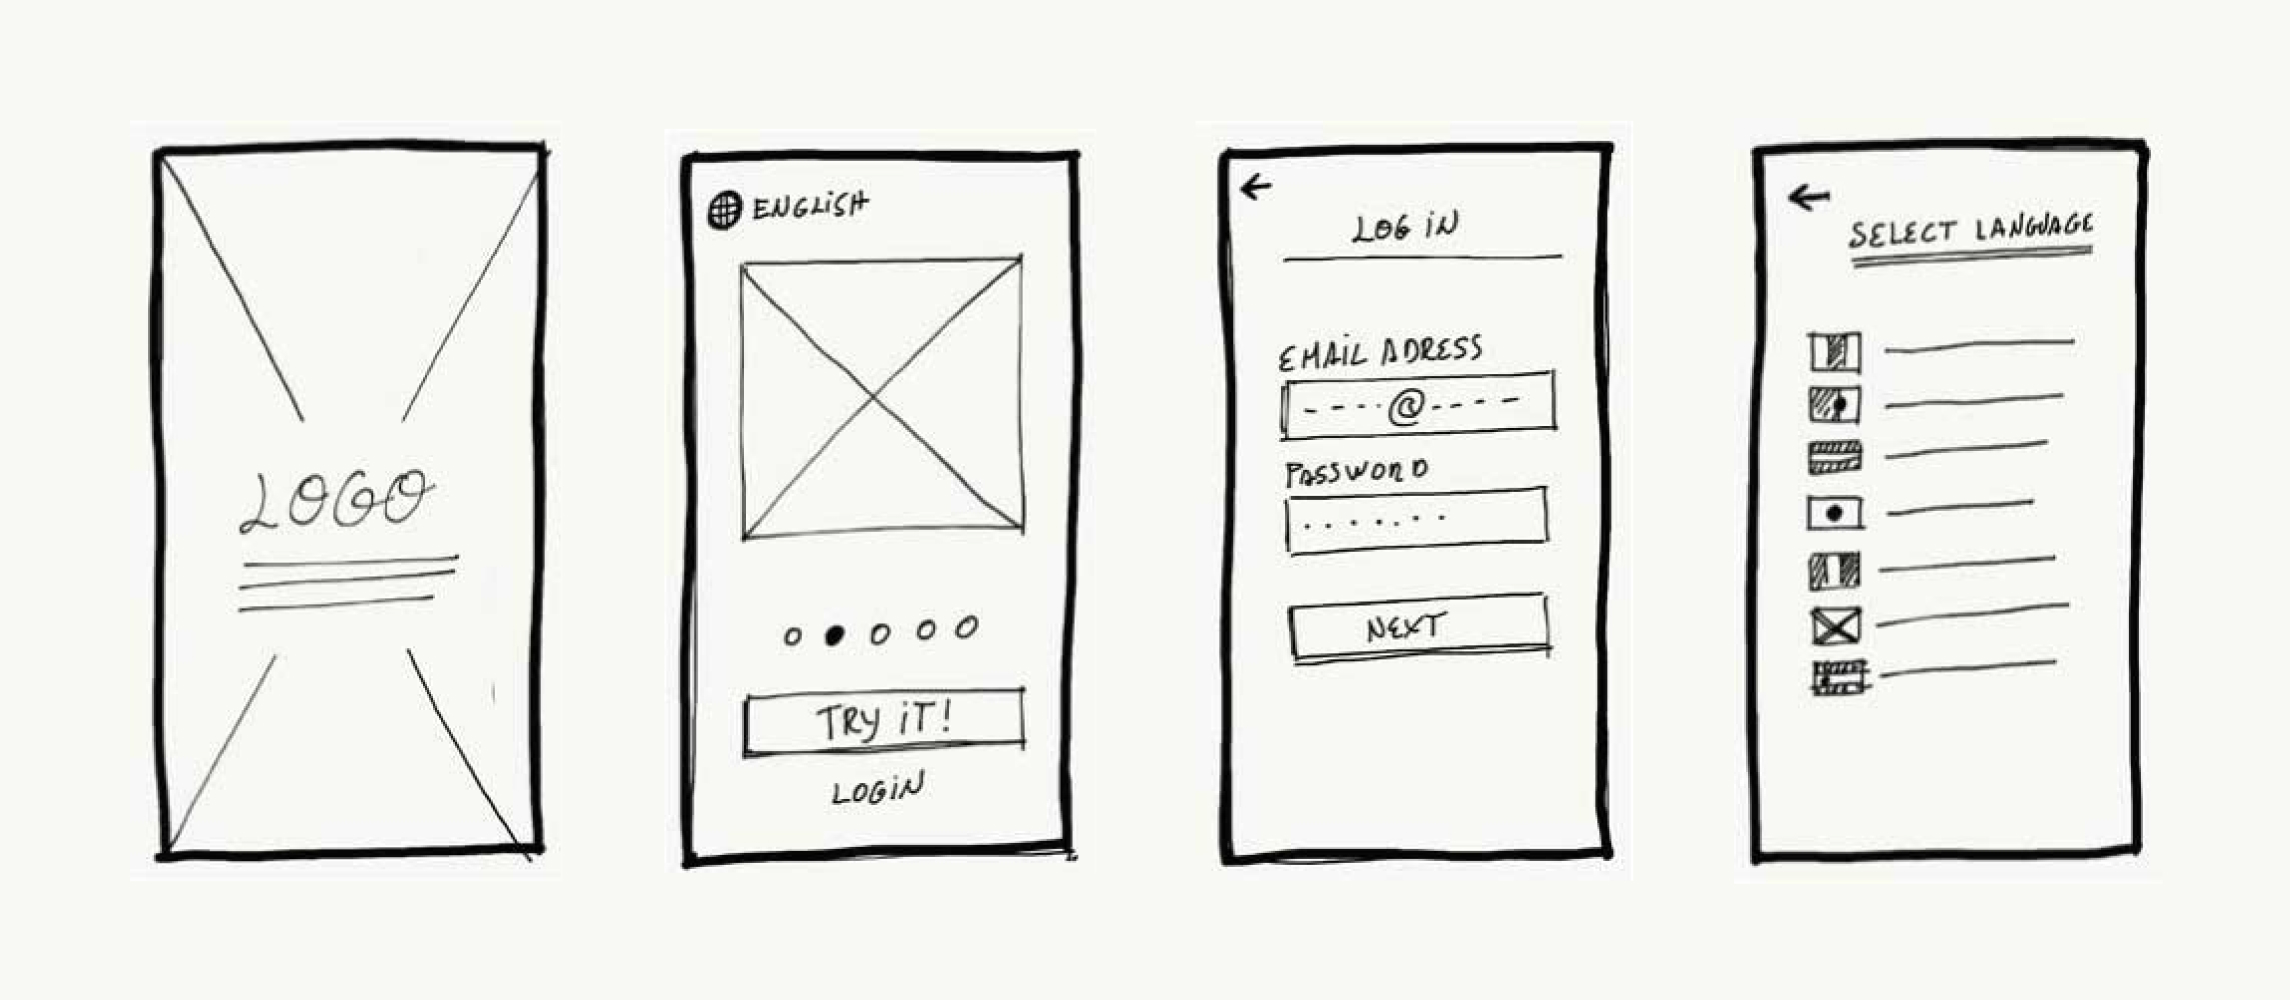 LOGO
ENGLiSH
TRY iT!
LOGiN
LOG iN
EMAiL ADRESS
----@----
PASSWORD
.......
NEXT
SELECT LANGUAGE